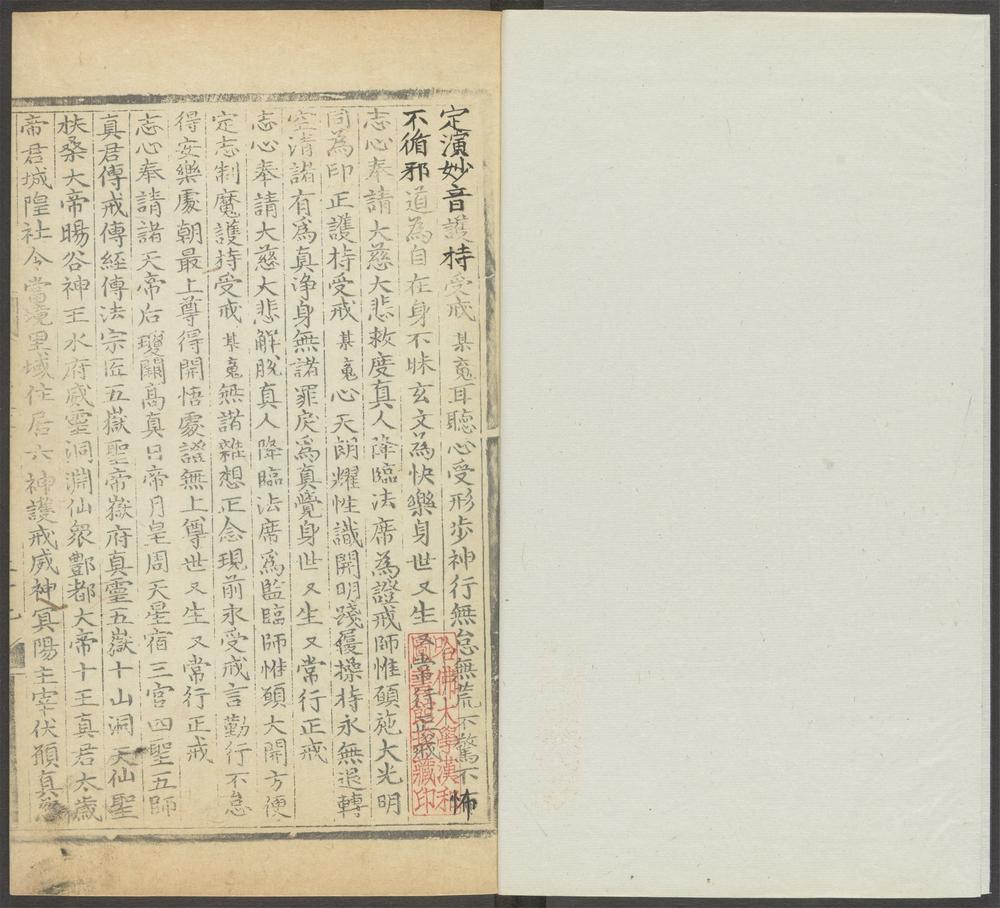 定演妙音護持受戒某䰟耳聽心受形步神行無怠無荒不驚不怖
不循邪道為自在身不昧玄文為快樂身世又生又常行正戒
志心奉請大慈大悲救度真人降臨法席為證戒師惟願施大光明
同為印正護持受戒某䰟心天朗耀性識開明踐履操持永無退轉
空清諸有爲真淨身無諸罪戾爲真覺身世又生又常行正戒
志心奉請大慈大悲解脫真人降臨法席爲監臨師惟願大開方便
定志制魔護持受戒某䰟無諸雜想正念現前永受戒言勤行不怠
得安樂處朝最上尊得開悟處證無上尊世又生又常行正戒
志心奉請諸天帝后瓊闕高真日帝月皇周天星宿三官四聖五師
真君傳戒傳經傳法宗匠五嶽聖帝嶽府真靈五嶽十山洞天仙聖
扶桑大帝暘谷神王水府威靈洞淵仙衆酆都大帝十王真君太歲
帝君城隍社令當境里域住居六神護戒威神冥陽主宰伏願真慈
哈佛大學漢和
圖書館珍藏印